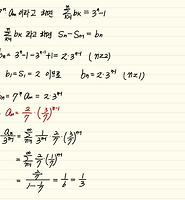 7ⁿ aₙ 이라고 하면 Σ bₖ = 3ⁿ-1
Σ bₖ 라고 하면 Sₙ-Sₙ₋₁ = bₙ
bₙ = 3ⁿ-1-3ⁿ⁻¹+1 = 2·3ⁿ⁻¹ (n≥2)
b₁ = S₁ = 2 이므로 bₙ = 2·3ⁿ⁻¹ (n≥1)
bₙ = 7ⁿ aₙ = 2·3ⁿ⁻¹
aₙ = 2/7 (3/7)ⁿ⁻¹
aₙ/3ⁿ⁻¹ = Σ 1/3ⁿ⁻¹ · 2/7 (3/7)ⁿ⁻¹
= Σ 2/7 (1/7)ⁿ⁻¹
= 2/7 / 1 - 1/7 = 1/3